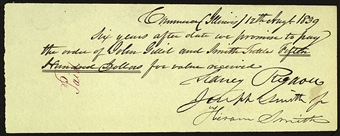 Commerce (Illinois) 12th Augt 1839
Six years after date we promise to pay
the order of John Gillet and Smith Tuttle Fifteen
Hundred Dollars for value received
Paid
Sidney Rigdon
Joseph Smith Jr
Hiram Smith